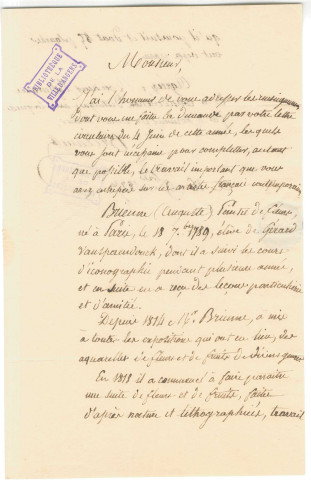 BIBLIOTHÈQUE
DE LA
VILLE D'ANGERS
Monsieur,
J'ai l'honneur de vous adresser les renseignemens
dont vous me faite la demande par votre lettre
courante du 4 Juin de cette année, lesquels
vous sont nécéssaire pour completter, autant
que possible, le travail important que vous
avez entrepris sur les artistes français contemporains
Peintre de fleurs,
né à Paris, le 18 7.bre 1789, élève de Gérard
Vanspaendonck, dont il a suivi les cours
d'iconographie pendant plusieurs année,
et en suite en a reçu des leçons particulières
et d'amitié.
Depuis 1814 Mr. a mis
à toutes les expositions qui ont eu lieu, des
aquarelles de fleurs et de fruits de divers genres
En 1818 il a commencé à faire paraitre
une suite de fleurs et de fruits, faite
d'après nature et lithographiés, travail